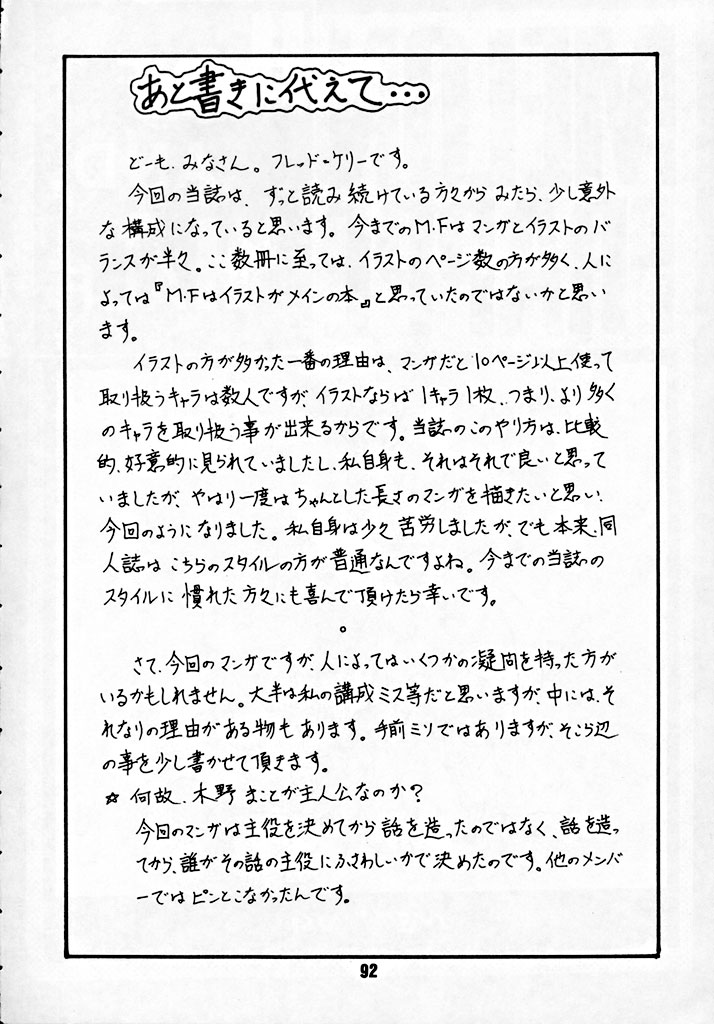 あと書きに代えて…
どーも、みなさん。フレッド・ケリーです。
今回の当誌は、ずっと読み続けている方々からみたら、少し意外
な構成になっていると思います。今までのM.Fはマンガとイラストのバ
ランスが半々。ここ数冊に至っては、イラストのページ数の方が多く、人に
よっては『M.Fはイラストがメインの本』と思っていたのではないかと思い
ます。
イラストの方が多かった一番の理由は、マンガだと10ページ以上使って
取り扱うキャラは数人ですが、イラストならば1キャラ1枚、つまり、より多く
のキャラを取り扱う事が出来るからです。当誌のこのやり方は、比較
的、好意的に見られていましたし、私自身も、それはそれで良いと思って
いましたが、やはり一度はちゃんとした長さのマンガを描きたいと思い、
今回のようになりました。私自身は少々苦労しましたが、でも本来、同
人誌はこちらのスタイルの方が普通なんですよね。今までの当誌の
スタイルに慣れた方々にも喜んで頂けたら幸いです。
。
さて、今回のマンガですが、人によってはいくつかの凝問を持った方が
いるかもしれません。大半は私の講成ミス等だと思いますが、中には、そ
れなりの理由がある物もあります。手前ミソではありますが、そこら辺
の事を少し書かせて頂きます。
☆何故、木野まことが主人公なのか？
今回のマンガは主役を決めてから話を造ったのではなく、話を造っ
てから、誰がその話の主役にふさわしいかで決めたのです。他のメンバ
ーではピンとこなかったんです。
92